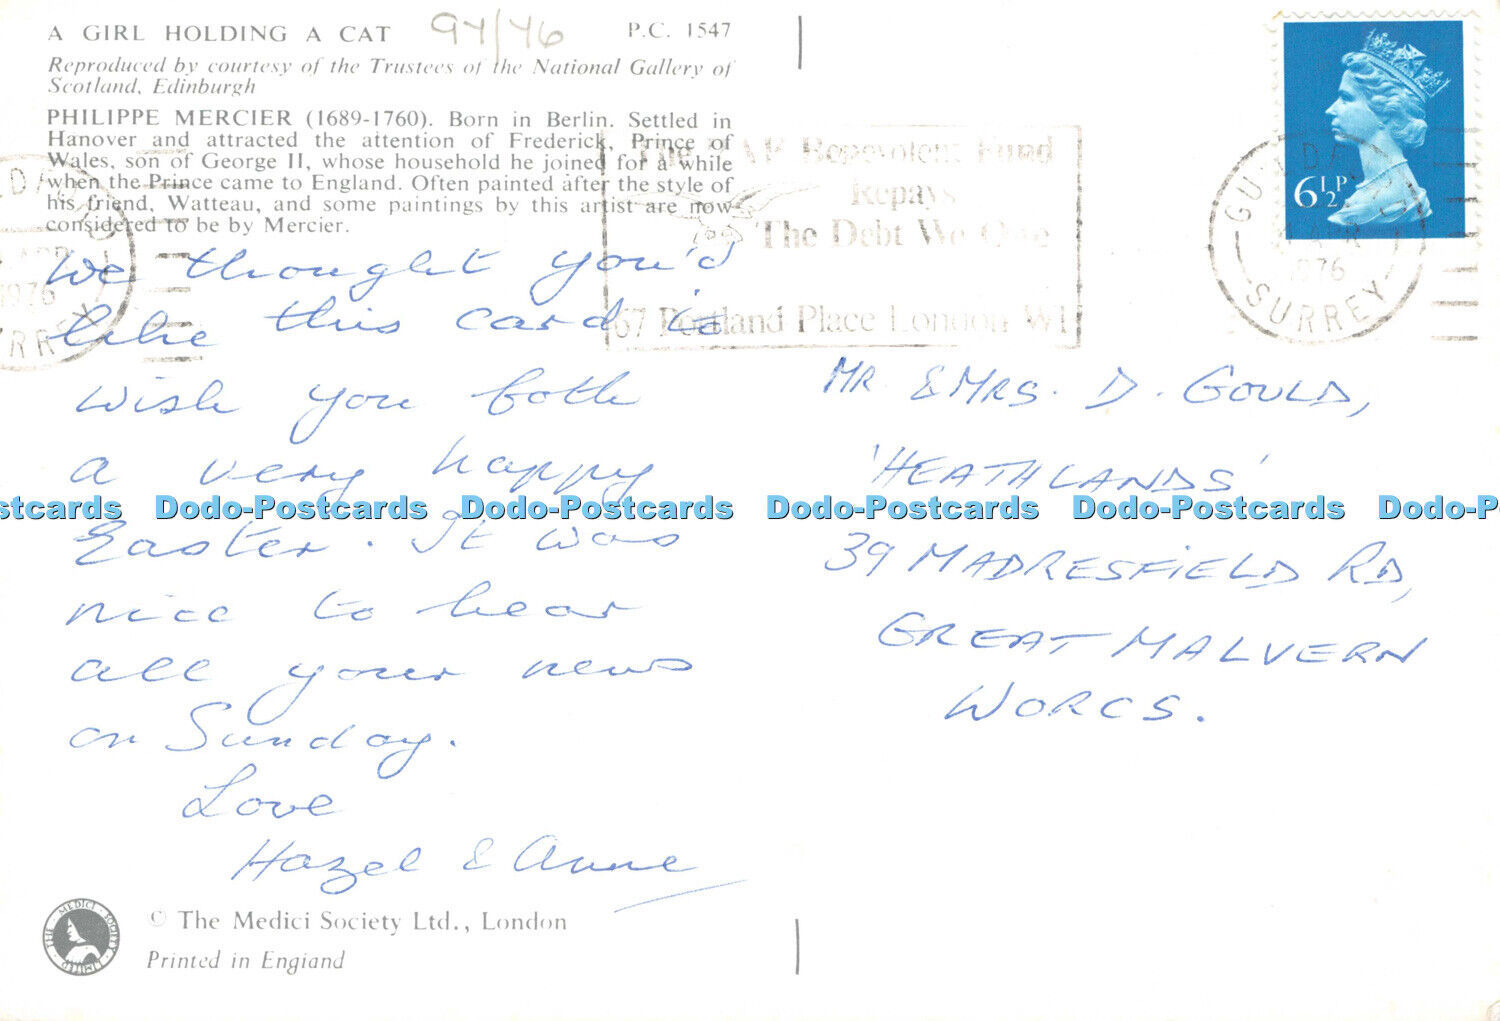 A GIRL HOLDING A CAT
94/46
P.C. 1547
Reproduced by courtesy of the Trustees of the National Gallery of
Scotland, Edinburgh
PHILIPPE MERCIER (1689-1760). Born in Berlin. Settled in
Hanover and attracted the attention of Frederick, Prince of
Wales, son of George II, whose household he joined for a while
when the Prince came to England. Often painted after the style of
his friend, Watteau, and some paintings by this artist are now
considered to be by Mercier.
We thought you'd
like this card to
wish you both
a very happy
Easter. It was
nice to hear
all your news
on Sunday.
Love
Hazel & Anne
© The Medici Society Ltd., London
Printed in England
THE MEDICI SOCIETY LIMITED
6½P
The RAF Benevolent Fund
Repays
The Debt We Owe
67 Portland Place London W1
1976
SURREY
1976
MR. & MRS. D. GOULD,
'HEATHLANDS'
39 MADRESFIELD RD,
GREAT MALVERN
WORCS.
Dodo-Postcards Dodo-Postcards Dodo-Postcards Dodo-Postcards